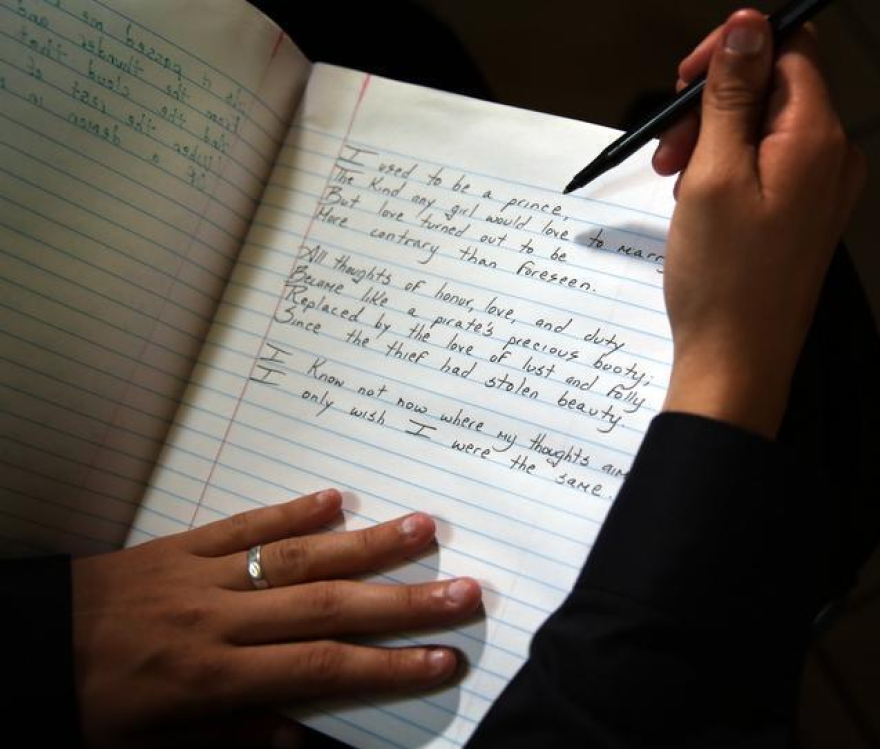 it passed me
From the thunder and
And the cloud that
When the rest of
Of a demon in
I used to be a prince,
The kind any girl would love to marry
But love turned out to be
More contrary than foreseen.
All thoughts of honor, love, and duty
Become like a pirate's precious booty;
Replaced by the love of lust and folly
Since the thief had stolen beauty.
I know not now where my thoughts aim
I only wish I were the same.